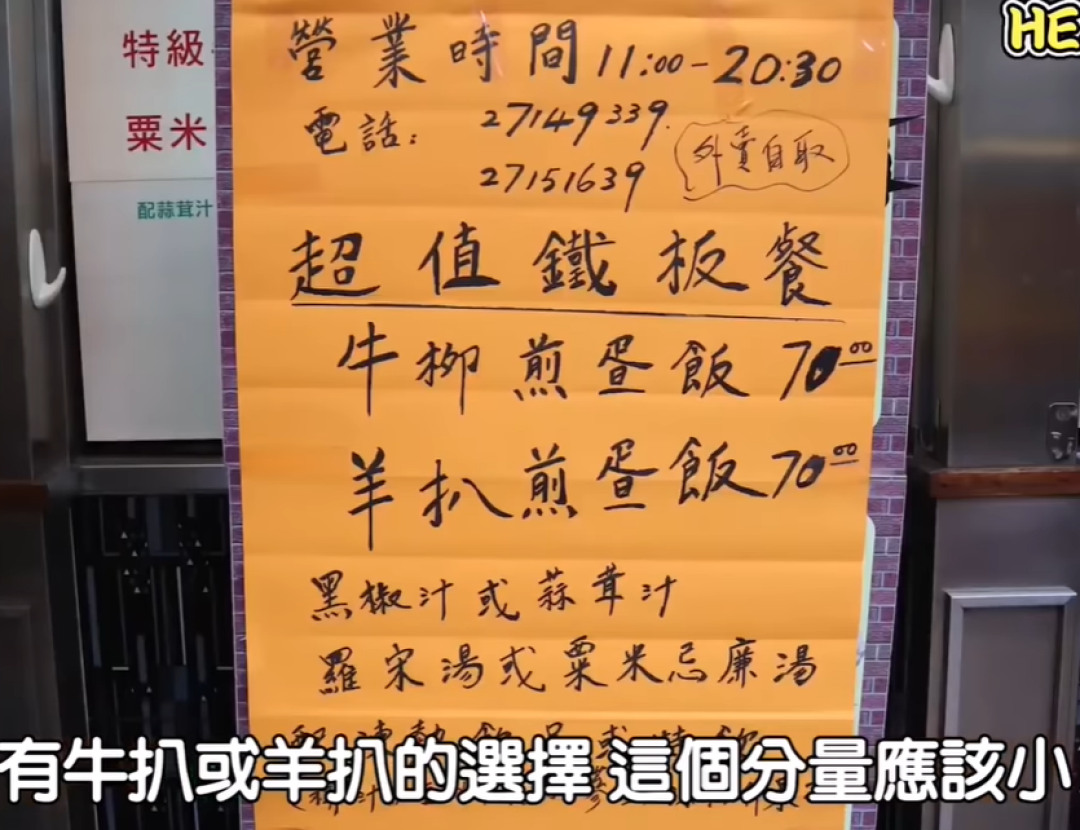 HE
特級
粟米
配蒜茸汁
營業時間 11:00-20:30
電話: 27149339.
27151639
外賣自取
超值鐵板餐
牛柳煎蛋飯 70.00
羊扒煎蛋飯 70.00
黑椒汁或蒜茸汁
羅宋湯或粟米忌廉湯
有牛扒或羊扒的選擇 這個分量應該小